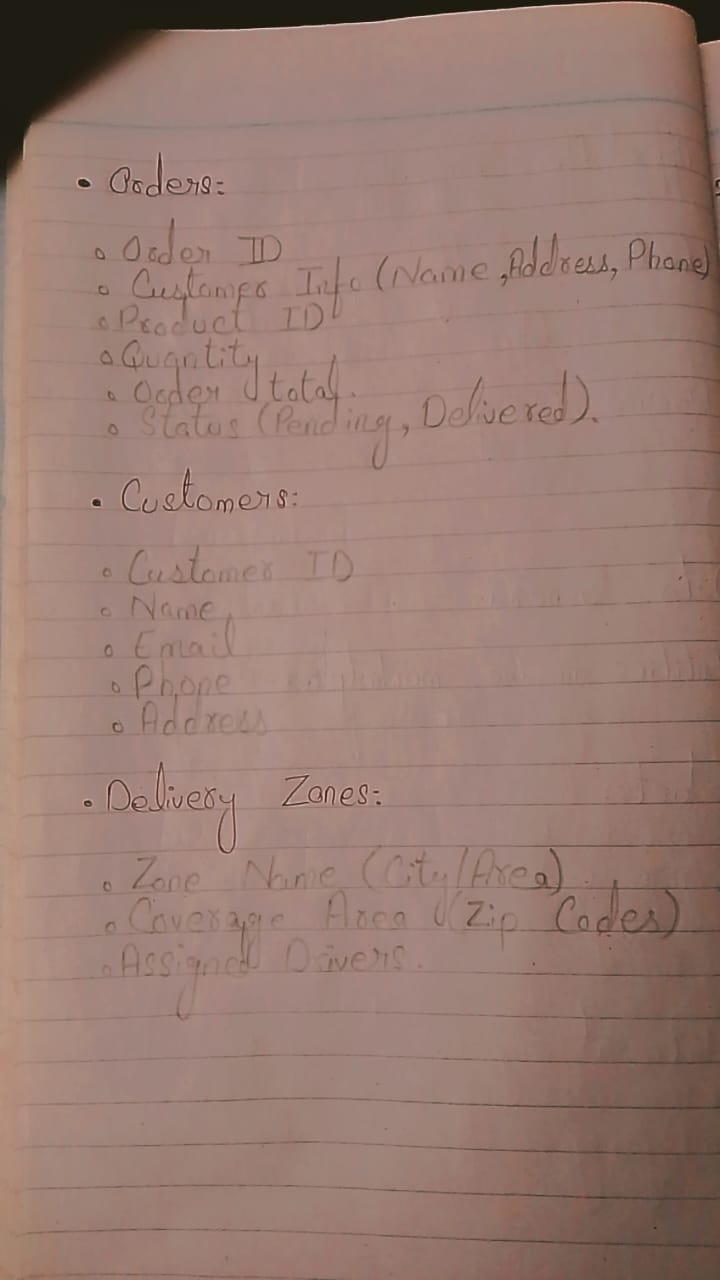 • Orders:
o Order ID
o Customer Info (Name, Address, Phone)
o Product ID
o Quantity
o Order total.
o Status (Pending, Delivered).
• Customers:
o Customer ID
o Name
o Email
o Phone
o Address
• Delivery Zones:
o Zone Name (City/Area)
o Coverage Area (Zip Codes)
o Assigned Drivers.